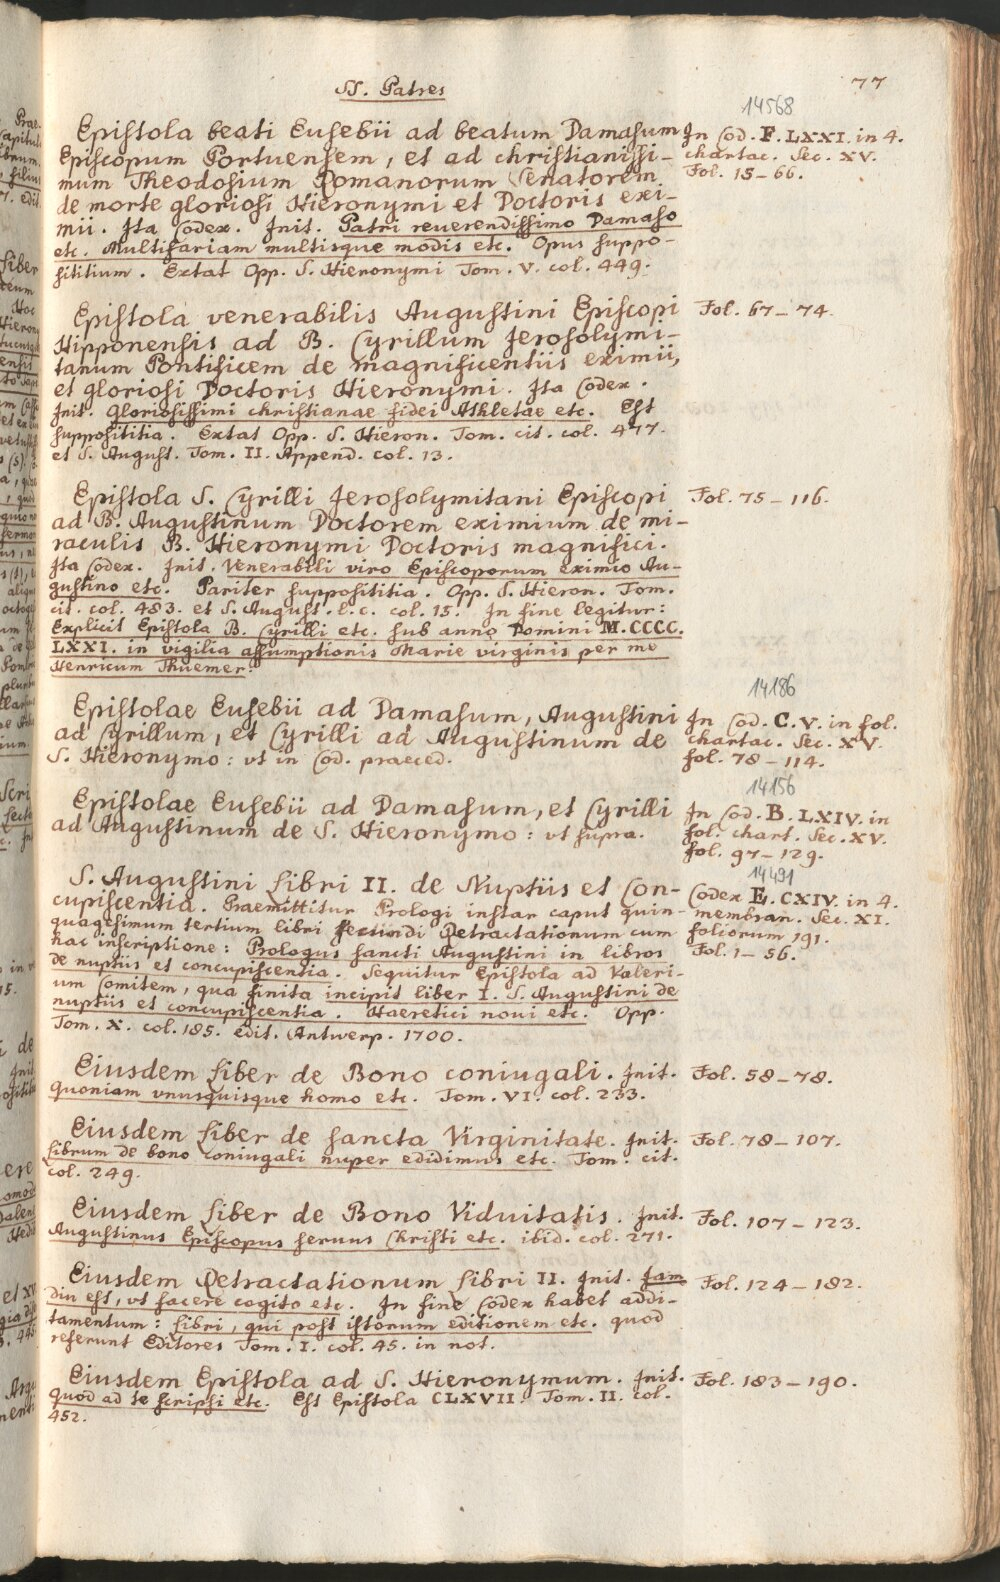 SS. Patres
77
14568
Epistola beati Eusebii ad beatum Damasum
Episcopum Portuensem, et ad christianissi-
mum Theodosium Romanorum Senatorem
de morte gloriosi Hieronymi et Doctoris exi-
mii. Ita Codex. Init. Patri reuerendissimo Damaso
etc. Multifariam multisque modis etc. Opus suppo-
sititium. Extat Opp. S. Hieronymi Tom. V. col. 449.
In Cod. F. LXXI. in 4.
chartac. Sec. XV.
Fol. 15-66.
Epistola venerabilis Augustini Episcopi
Hipponensis ad B. Cyrillum Jerosolymi-
tanum Pontificem de magnificentiis eximii,
et gloriosi Doctoris Hieronymi. Ita Codex.
Init. Gloriosissimi christianae fidei Athletae etc. Est
supposititia. Extat Opp. S. Hieron. Tom. cit. col. 477.
et S. August. Tom. II. Append. col. 13.
Fol. 67-74.
Epistola S. Cyrilli Jerosolymitani Episcopi
ad B. Augustinum Doctorem eximium de mi-
raculis B. Hieronymi Doctoris magnifici.
Ita Codex. Init. Venerabili viro Episcoporum eximio Au-
gustino etc. Pariter supposititia. Opp. S. Hieron. Tom.
cit. col. 483. et S. August. l. c. col. 15. In fine legitur:
Explicit Epistola B. Cyrilli etc. sub anno Domini M.CCCC.
LXXI. in vigilia assumptionis Marie virginis per me
Henricum Thuemer.
Fol. 75-116.
14186
Epistolae Eusebii ad Damasum, Augustini
ad Cyrillum, et Cyrilli ad Augustinum de
S. Hieronymo: vt in Cod. praeced.
In Cod. C. V. in fol.
chartac. Sec. XV.
fol. 78-114.
14156
Epistolae Eusebii ad Damasum, et Cyrilli
ad Augustinum de S. Hieronymo: vt supra.
In Cod. B. LXIV. in
fol. chart. Sec. XV.
fol. 97-129.
14491
S. Augustini Libri II. de Nuptiis et Con-
cupiscentia. Praemittitur Prologi instar caput quin-
quagesimum tertium libri secundi Retractationum cum
hac inscriptione: Prologus sancti Augustini in libros
de nuptiis et concupiscentia. Sequitur Epistola ad Valeri-
um Comitem, qua finita incipit liber I. S. Augustini de
nuptiis et concupiscentia. Haeretici noui etc. Opp.
Tom. X. col. 185. edit. Antwerp. 1700.
Codex E. CXIV. in 4.
membran. Sec. XI.
foliorum 191.
Fol. 1-56.
Eiusdem Liber de Bono coniugali. Init.
Quoniam vnusquisque homo etc. Tom. VI. col. 233.
Fol. 58-78.
Eiusdem Liber de sancta Virginitate. Init.
Librum de bono coniugali nuper edidimus etc. Tom. cit.
col. 249.
Fol. 78-107.
Eiusdem Liber de Bono Viduitatis. Init.
Augustinus Episcopus seruus Christi etc. ibid. col. 271.
Fol. 107-123.
Eiusdem Retractationum Libri II. Init. Jam
diu est, vt facere cogito etc. In fine Codex habet addi-
tamentum: Libri, qui post istorum editionem etc. quod
referunt Editores Tom. I. col. 45. in not.
Fol. 124-182.
Eiusdem Epistola ad S. Hieronymum. Init.
Quod ad te scripsi etc. Est Epistola CLXVII. Tom. II. col.
452.
Fol. 183-190.